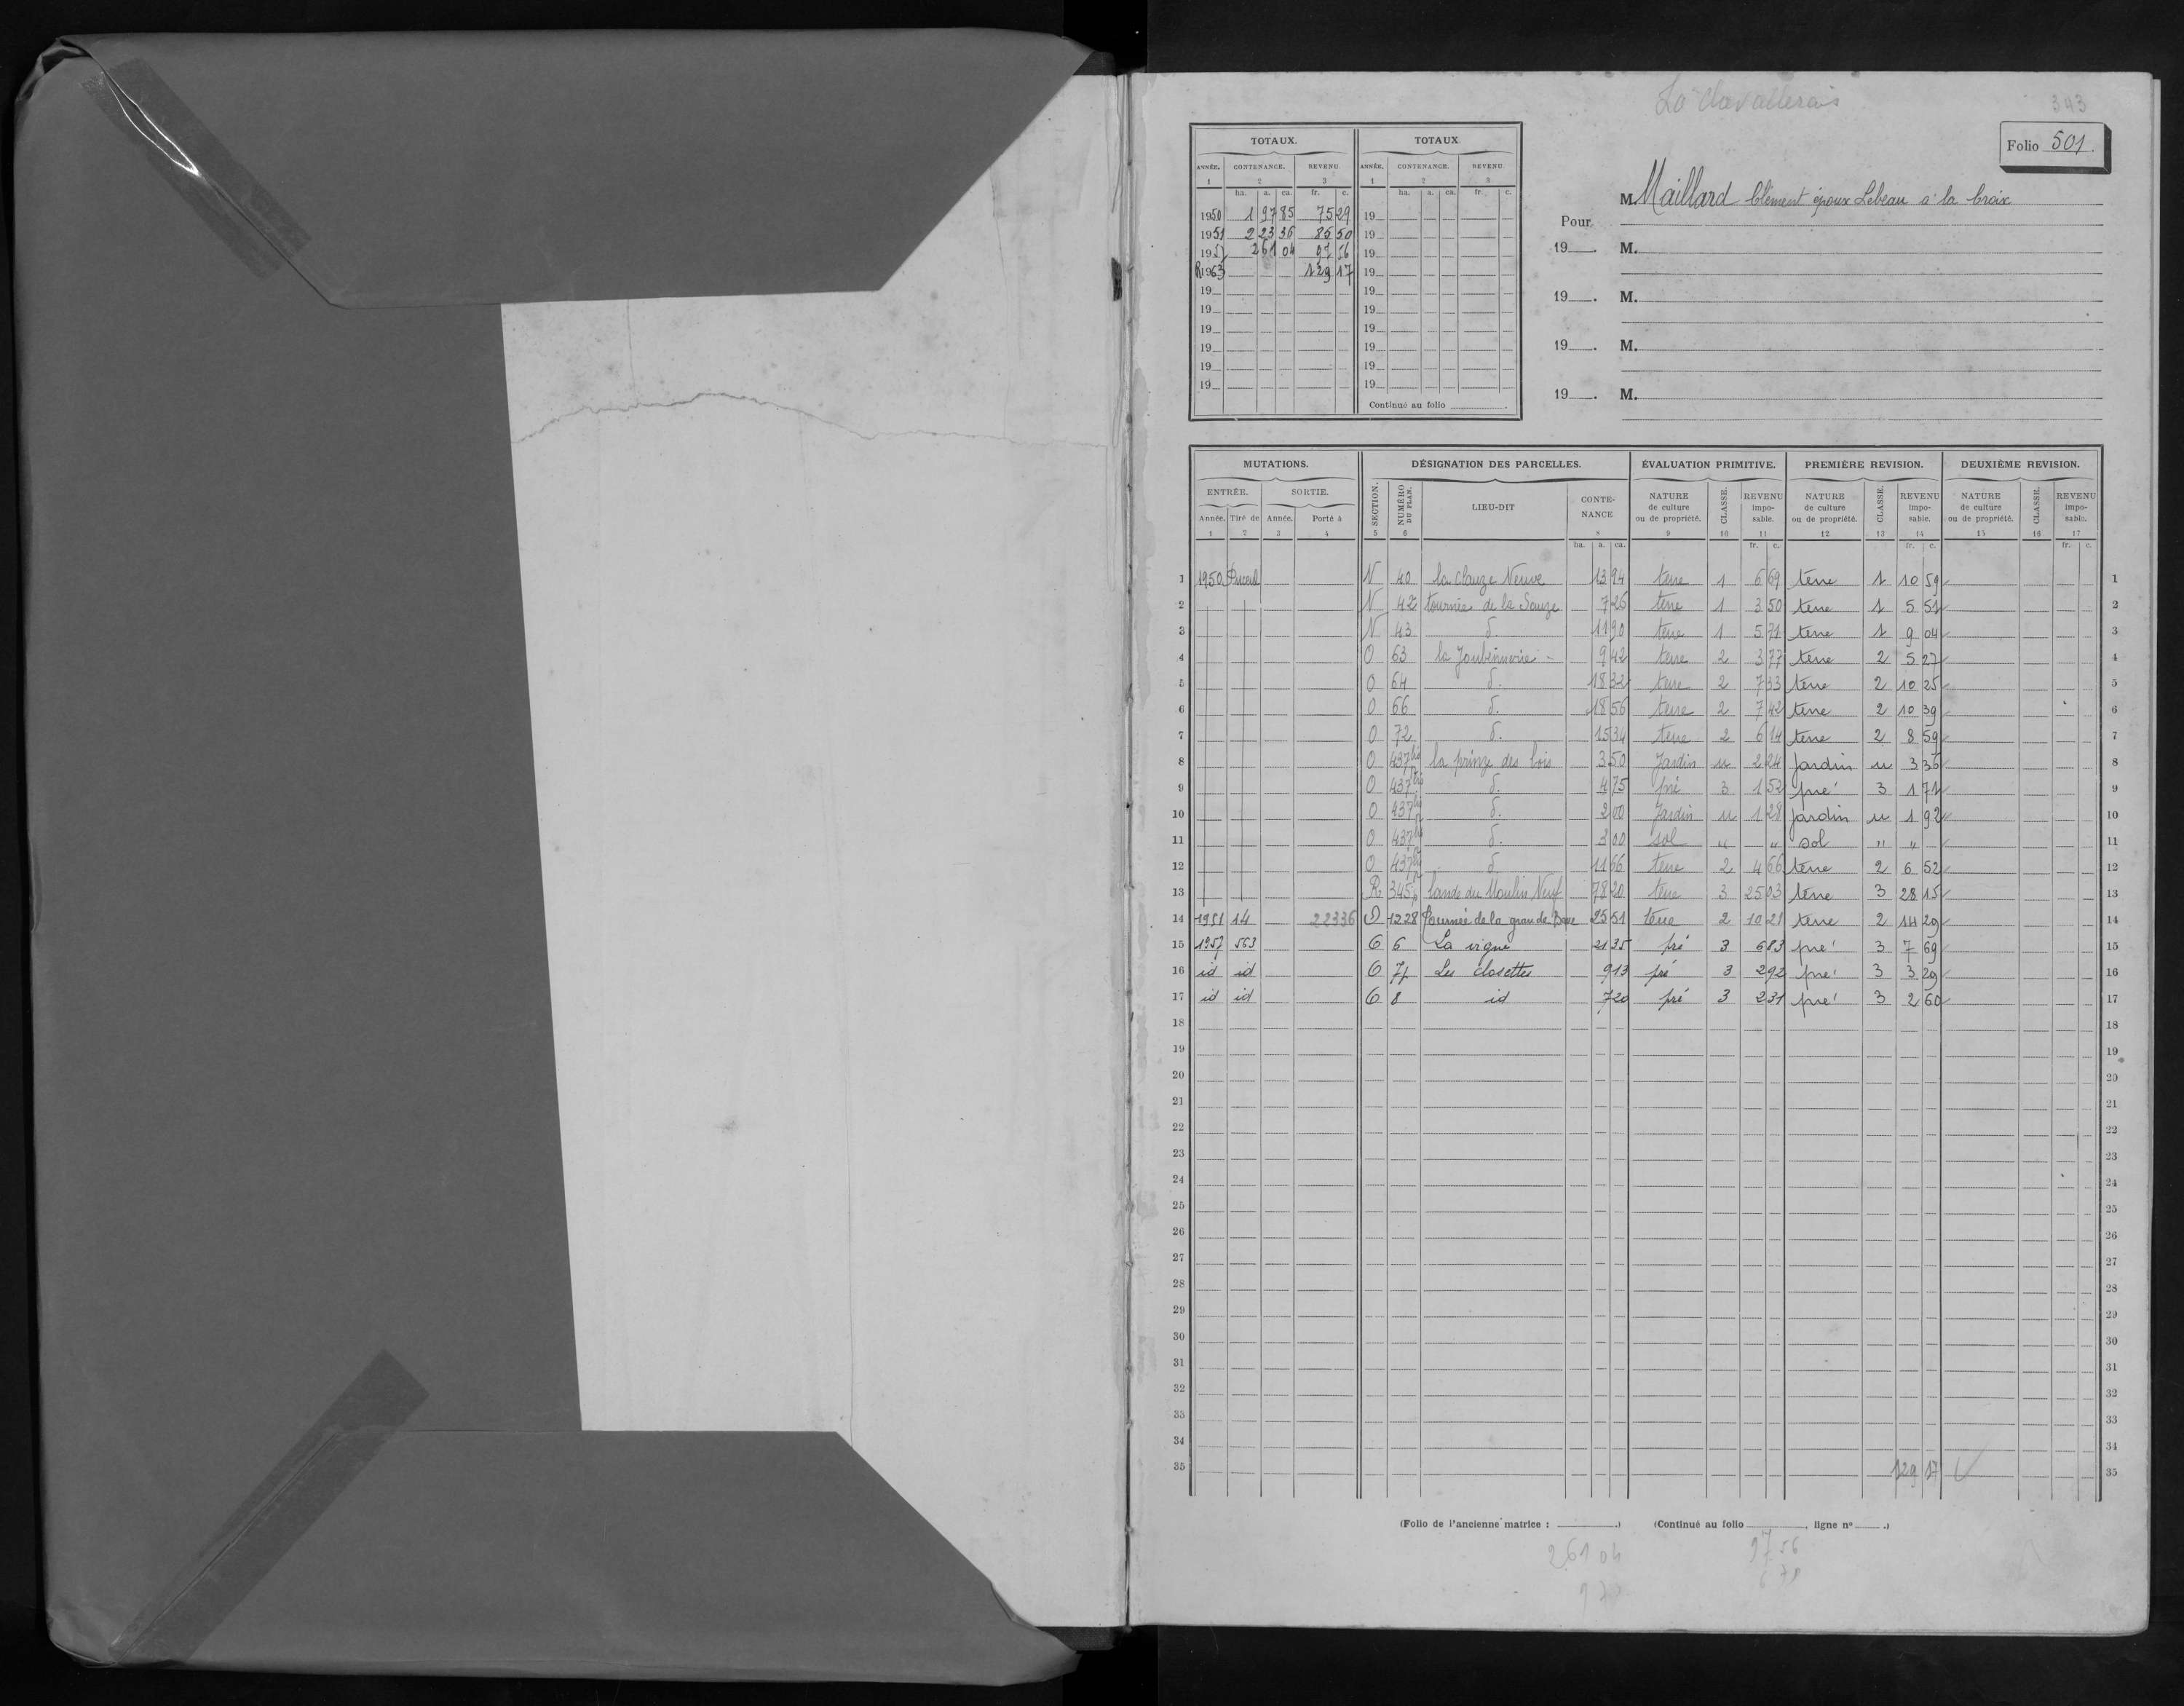 La Chevallerais
343
Folio 501.
TOTAUX. TOTAUX
ANNÉE. CONTENANCE. REVENU ANNÉE. CONTENANCE. REVENU
1 2 3 1 2 3
ha. a. ca. fr. c. ha. a. ca. fr. c.
1950 1 97 85 75 29 19
1951 2 23 36 85 50 19
1957 2 61 04 97 56 19
R1963 129 17 19
19 19
19 19
19 19
19 19
19 19
19 19
Continué au folio .
M. Maillard Clément époux Lebeau à la Croix
Pour
19 . M.
19 . M.
19 . M.
19 . M.
MUTATIONS. DÉSIGNATION DES PARCELLES. ÉVALUATION PRIMITIVE. PREMIÈRE REVISION. DEUXIÈME REVISION.
ENTRÉE. SORTIE. SECTION. NUMÉRO DU PLAN. LIEU-DIT CONTE-NANCE NATURE de culture ou de propriété. CLASSE. REVENU impo-sable. NATURE de culture ou de propriété. CLASSE. REVENU impo-sable. NATURE de culture ou de propriété. CLASSE. REVENU impo-sable.
Année. Tiré de Année. Porté à
1 2 3 4 5 6 8 9 10 11 12 13 14 15 16 17
ha. a. ca. fr. c. fr. c. fr. c.
1 1950 Puceul N 40 la Clauze Neuve 13 94 terre 1 6 69 terre 1 10 59 1
2 N 42 tournée de la Sauze 7 26 terre 1 3 50 terre 1 5 51 2
3 N 43 d. 11 90 terre 1 5 71 terre 1 9 04 3
4 O 63 la 9 42 terre 2 3 77 terre 2 5 27 4
5 O 64 d. 18 32 terre 2 7 33 terre 2 10 25 5
6 O 66 d. 18 56 terre 2 7 42 terre 2 10 39 6
7 O 72 d. 15 34 terre 2 6 14 terre 2 8 59 7
8 O 437 la prinze des bois 3 50 Jardin u 2 24 Jardin u 3 36 8
9 O 437 d. 4 75 pré 3 1 52 pré 3 1 71 9
10 O 437 d. 2 00 Jardin u 1 28 Jardin u 1 92 10
11 O 437 d. 3 00 sol " " sol " " 11
12 O 437 d. 11 66 terre 2 4 66 terre 2 6 52 12
13 R 345 lande du Moulin Neuf 78 20 terre 3 25 03 terre 3 28 15 13
14 1951 14 22336 O 1228 Tournée de la grande 25 51 terre 2 10 21 terre 2 14 29 14
15 1957 563 6 6 La vigne 21 35 pré 3 6 83 pré 3 7 69 15
16 id id 6 7 Les closettes 9 13 pré 3 2 92 pré 3 3 29 16
17 id id 6 8 id 7 20 pré 3 2 31 pré 3 2 60 17
18 18
19 19
20 20
21 21
22 22
23 23
24 24
25 25
26 26
27 27
28 28
29 29
30 30
31 31
32 32
33 33
34 34
35 129 17 35
(Folio de l'ancienne matrice : .) (Continué au folio , ligne n° .)
2 61 04 97 56